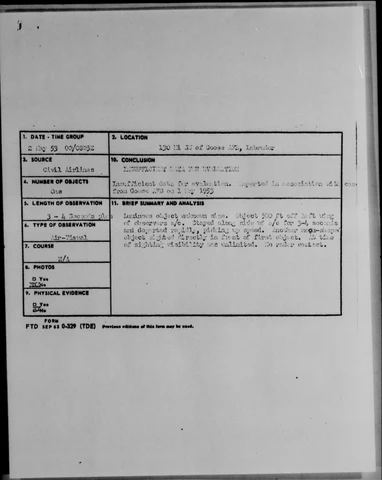 1. DATE - TIME GROUP
2 May 53 02/0225Z
2. LOCATION
130 Mi of Goose AFB, Labrador
3. SOURCE
Civil Airlines
10. CONCLUSION
INSUFFICIENT DATA FOR EVALUATION
4. NUMBER OF OBJECTS
One
Insufficient data for evaluation. Reported in association with
from Goose AFB on 1 May 1953
5. LENGTH OF OBSERVATION
3 - 4 Seconds plus
11. BRIEF SUMMARY AND ANALYSIS
Luminous object unknown size. Object 500 ft off left wing
of observers a/c. Stayed along side of a/c for 3-4 seconds
and departed rapidly, picking up speed. Another moon-shaped
object sighted directly in front of first object. At time
of sighting visibility was unlimited. No radar contact.
6. TYPE OF OBSERVATION
Air-Visual
7. COURSE
N/A
8. PHOTOS
□ Yes
No
9. PHYSICAL EVIDENCE
□ Yes
□ No
FORM
FTD SEP 63 0-329 (TDE) Previous editions of this form may be used.